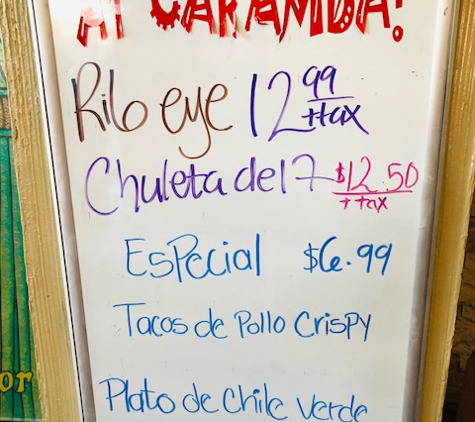 AY CARAMBA!
Rib eye 12.99 +tax
Chuleta del 7 $12.50 + tax
Especial $6.99
Tacos de Pollo Crispy
Plato de Chile Verde
or